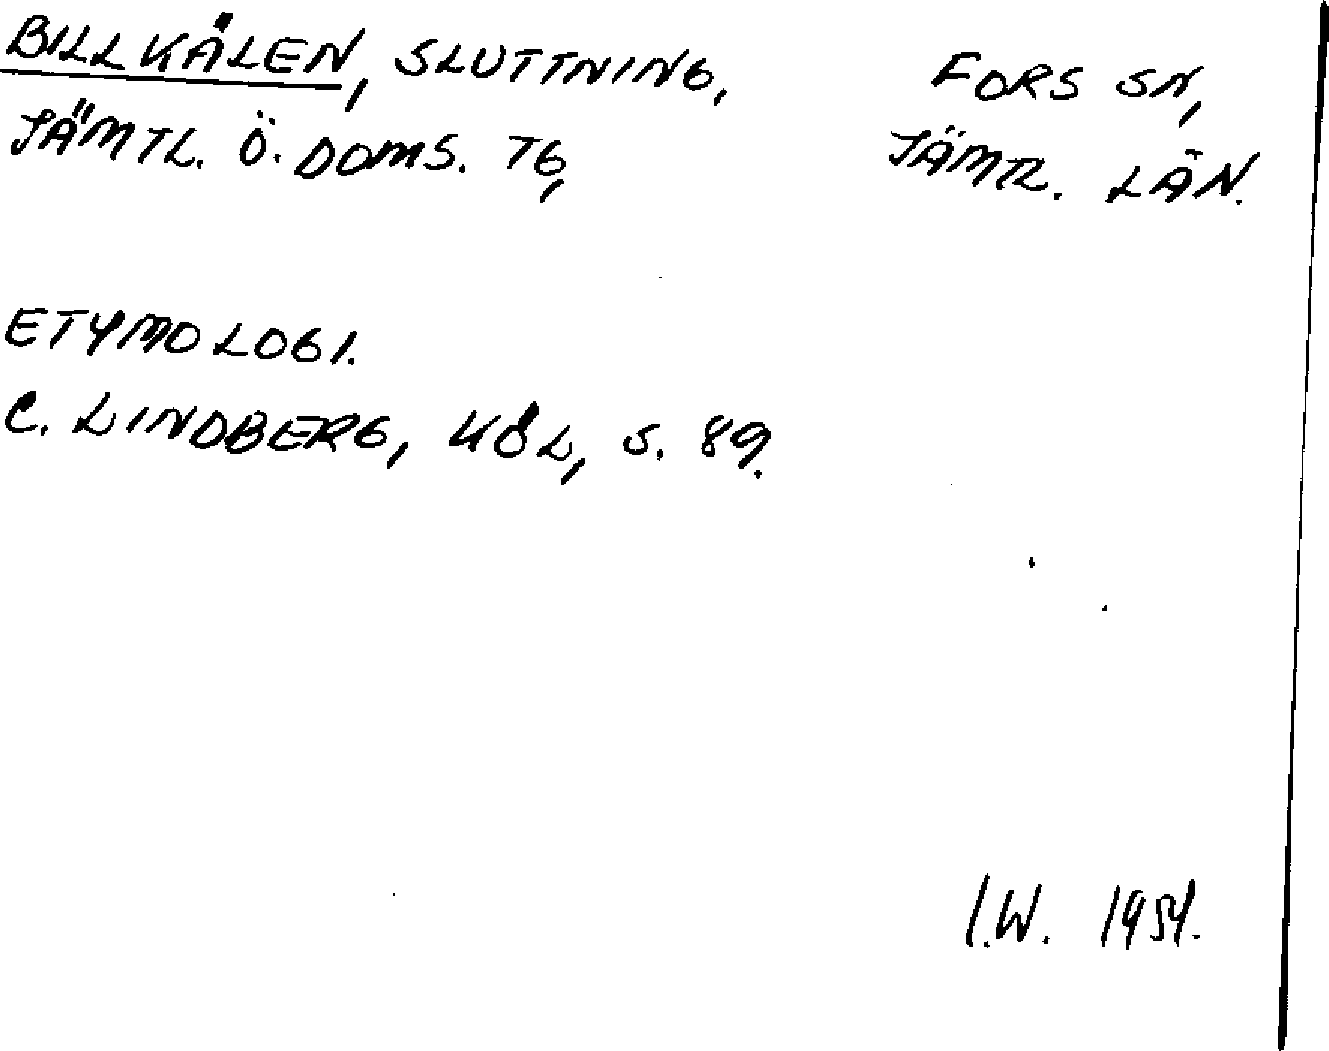 BILLKÅLEN, SLUTTNING, FORS SN,
JÄMTL. Ö. DOMS. TG, JÄMTL. LÄN.
ETYMOLOGI.
C. LINDBERG, KÖL, S. 89.
I.W. 1951.